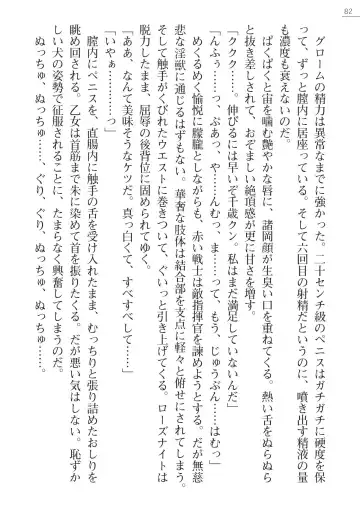 82
　グロームの精力は異常なまでに強かった。二十センチ級のペニスはガチガチに硬度を保
って、ずっと膣内に居座っている。そして六回目の射精だというのに、噴き出す精液の量
も濃度も衰えないのだ。
　ぱくぱくと宙を噛む艶やかな唇に、諸岡顔が生臭い口を重ねてくる。熱い舌をぬらぬら
と抜き差しされて、おぞましい絶頂感が更に甘さを増す。
「ククク……。伸びるには早いぞ千歳クン。私はまだ満足していないんだ」
「んふぅ……っ、ぷあっ、や……んむっ、ま……って、もう、じゅうぶん……はむっ」
　めくるめく愉悦に朦朧としながらも、赤い戦士は敵指揮官を諫めようとする。だが無慈
悲な淫獣に通じるはずもない。華奢な肢体は結合部を支点に軽々と俯せにされてしまう。
そして触手がくびれたウエストに巻きついて、ぐいっと引き上げてくる。ローズナイトは
脱力したまま、屈辱の後背位に固められてゆく。
「ああ、なんて美味そうなケツだ。真っ白くて、すべすべして……」
「いやぁ……」
　膣内にペニスを、直腸内に触手の舌を受け入れたまま、むっちりと張り詰めたおしりを
眺め回される。乙女は首筋まで朱に染めて首を振りたくる。だが悪い気はしない。恥ずか
しい犬の姿勢で征服されることに、たまらなく興奮してしまうのだ。
　ぬっちゅ、ぬっちゅ……、ぐり、ぐり、ぬっちゅ、ぬっちゅ……。